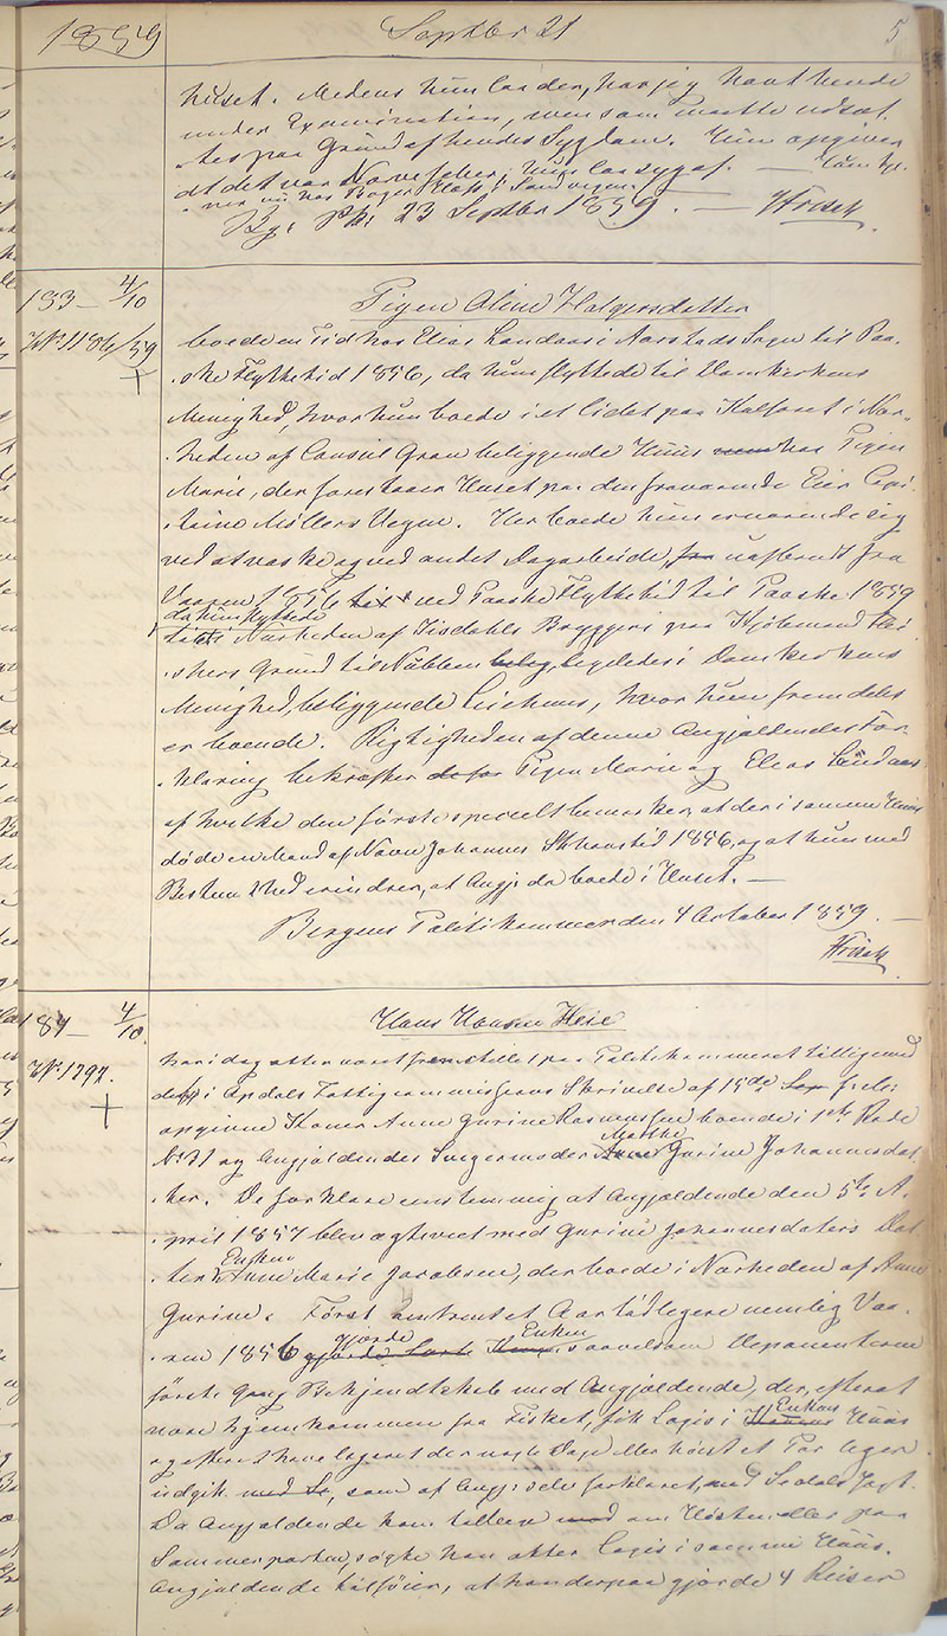 1859 Septbr 21 5
huset. Medens hun laa der, har jeg havt hende
under Examination, men som maatte udsæt-
tes paa Grund af hendes Sygdom. Hun opgiver
at det var Nervefeber, hun laa syg af. — Hun
er nu hos Bager i Sandvigen.
Bg. Pk. 23 Septbr 1859. —
133 — 4/10
Pigen Oline Holgersdatter
No 1186/59
boede en Tid hos Elias Landaas i Aarstads Sogn til Paa-
ske Flyttetid 1856, da hun flyttede til Domkirkens
Menighed, hvor hun boede i et lidet paa Kalfaret i Nær-
heden af Consul Gran beliggende Huus hos Pigen
Marie, der forestaaer Huset paa den fraværende Eier
Møllers Vegne. Her boede hun ernærende sig
ved at vaske og ved andet Dagarbeide, fra uafbrudt fra
Vaaren 1856 til ved Paaske Flyttetid til Paaske 1859
da hun flyttede
til i Nærheden af Isdahls Bryggeri paa Kjøbmand
Grund til Nubben belig ligeledes i Domkirkens
Menighed, beliggende huus, hvor hun fremdeles
er boende. Rigtigheden af denne Angjældendes For-
klaring bekræfter de for Pigen Marie og Elias Landaas
af hvilke den første specielt bemærker, at der i samme Huus
døde en Mand af Navn Johannes St. Hanstid 1856, og at hun med
Bestemthed erindrer, at Angj. da boede i Huset. —
Bergens Politikammer den 4 October 1859. —
184 — 4/10
Hans Hansen Heie
No 1292.
har idag atter været fremstillet paa Politikammeret tilligemed
de i Opdals Fattigcommissions Skrivelse af 15de Sep f. A.
opgivne Koner Anne Gurine Rasmussen boende i 1ste Rode
No 31 og Angjældendes Svigermoder Anne Marthe Gurine Johannesdat-
ter. De forklare eenstemmig at Angjældende den 5te A-
pril 1857 blev ægteviet med Gurine Johannesdatters Dat-
ter Enken Anne Marie Jacobsen, der boede i Nærheden af Anne
Gurine. Først omtrent et Aar tidligere nemlig Vaa-
ren 1856 gjorde gjorde Enken saavelsom Deponenterne
første Gang Bekjendtskab med Angjældende, der, efterat
være hjemkommen fra Fisket, fik Logis i Enkens Huus
og efter at have logeret der nogle Dage eller høist et Par Uger
udgik med, som af Angj. selv forklaret, med Jagt.
Da Angjældende kom tilbage med om Høsten eller paa
Sommerparten, søgte han atter Logis i samme Huus.
Angjældende tilføier, at han derpaa gjorde 4 Reiser